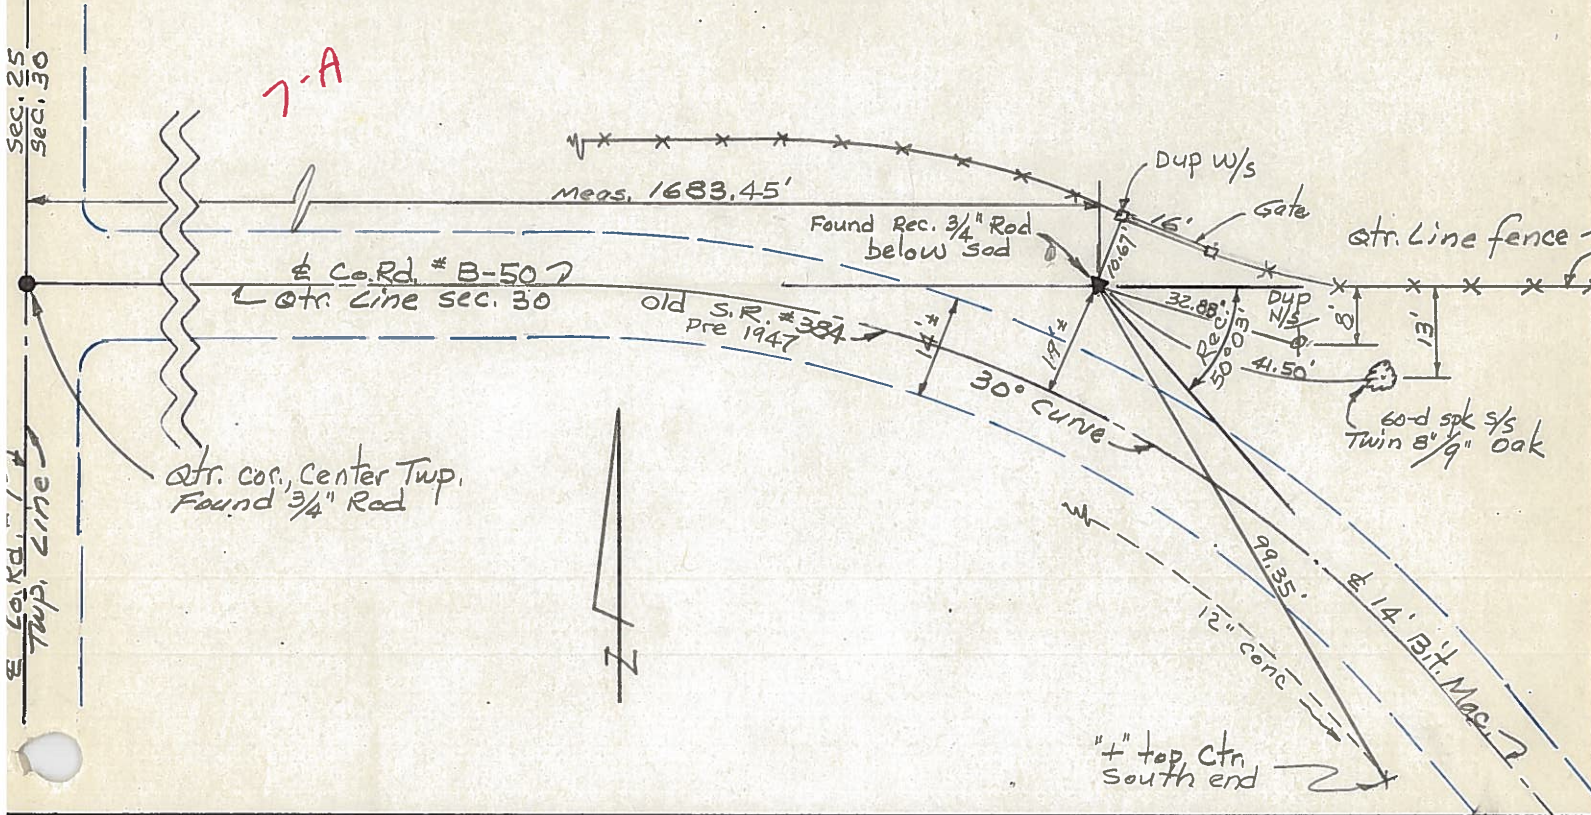 Sec. 25
Sec. 30
7-A
Meas. 1683.45'
Dup W/s
Gate
16'
Qtr. Line fence
Found Rec. 3/4" Rod
below sod
10.67'
℄ Co. Rd. # B-50
Qtr. Line sec. 30
Old S.R. #384
Pre 1947
14'±
19'±
30° Curve
32.88'
Dup
N/s
8'
13'
Rec.
50°03'
41.50'
60-d spk s/s
Twin 8"/9" Oak
Qtr. cor., Center Twp.
Found 3/4" Rod
℄ Co. Rd.
Twp. Line
N
99.35'
12" conc
℄ 14' Bit. Mac.
"+" top Ctr.
South end